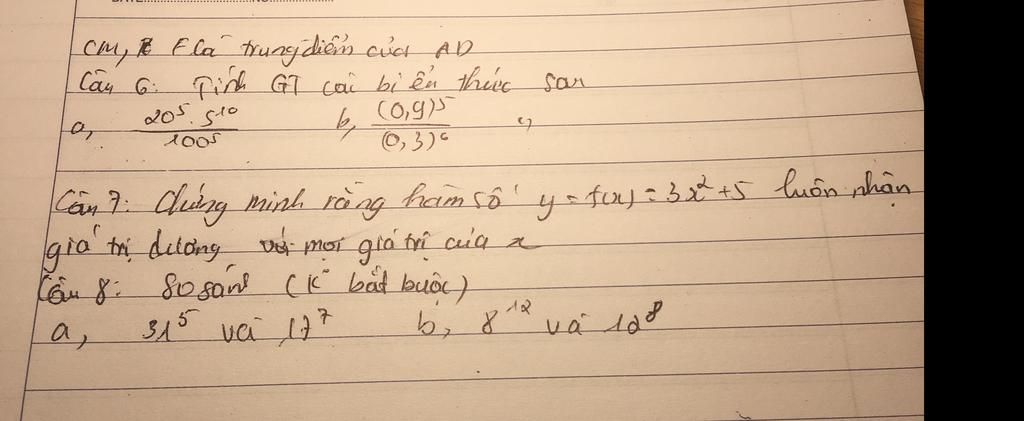 CM, F là trung điểm của AD
Câu 6: Tính GT các biểu thức sau
a, 20⁵.5¹⁰/100⁵ b, (0,9)⁵/(0,3)⁶ c,
Câu 7: Chứng minh rằng hàm số y = f(x) = 3x² + 5 luôn nhận
giá trị dương với mọi giá trị của x
Câu 8: So sánh (K bắt buộc)
a, 31⁵ và 17⁷ b, 8¹² và 12⁸